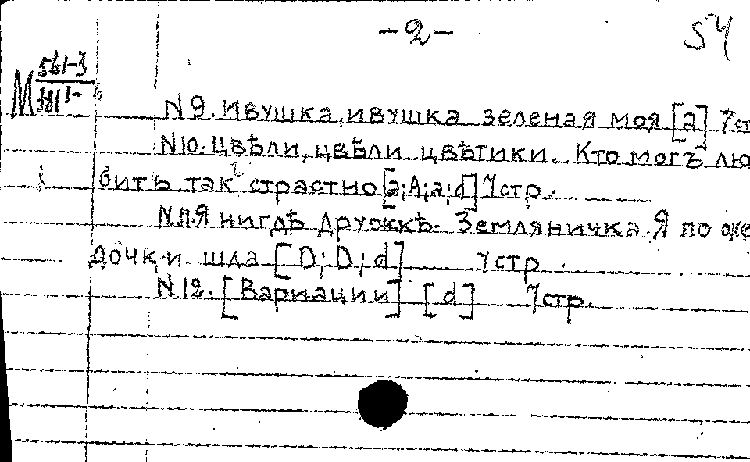 -2-
54
М 561-3
381 1-
N 9. Ивушка, ивушка зеленая моя [a] 7 ст
N 10. Цвѣли, цвѣли цвѣтики. Кто могъ лю
бить такъ страстно [a; A; a; d] 7 стр.
N 11. Я нигдѣ дружкѣ. Земляничка Я по
дочки шла [D; D; d] 7 стр.
N 12. [Вариации] [d] 7 стр.